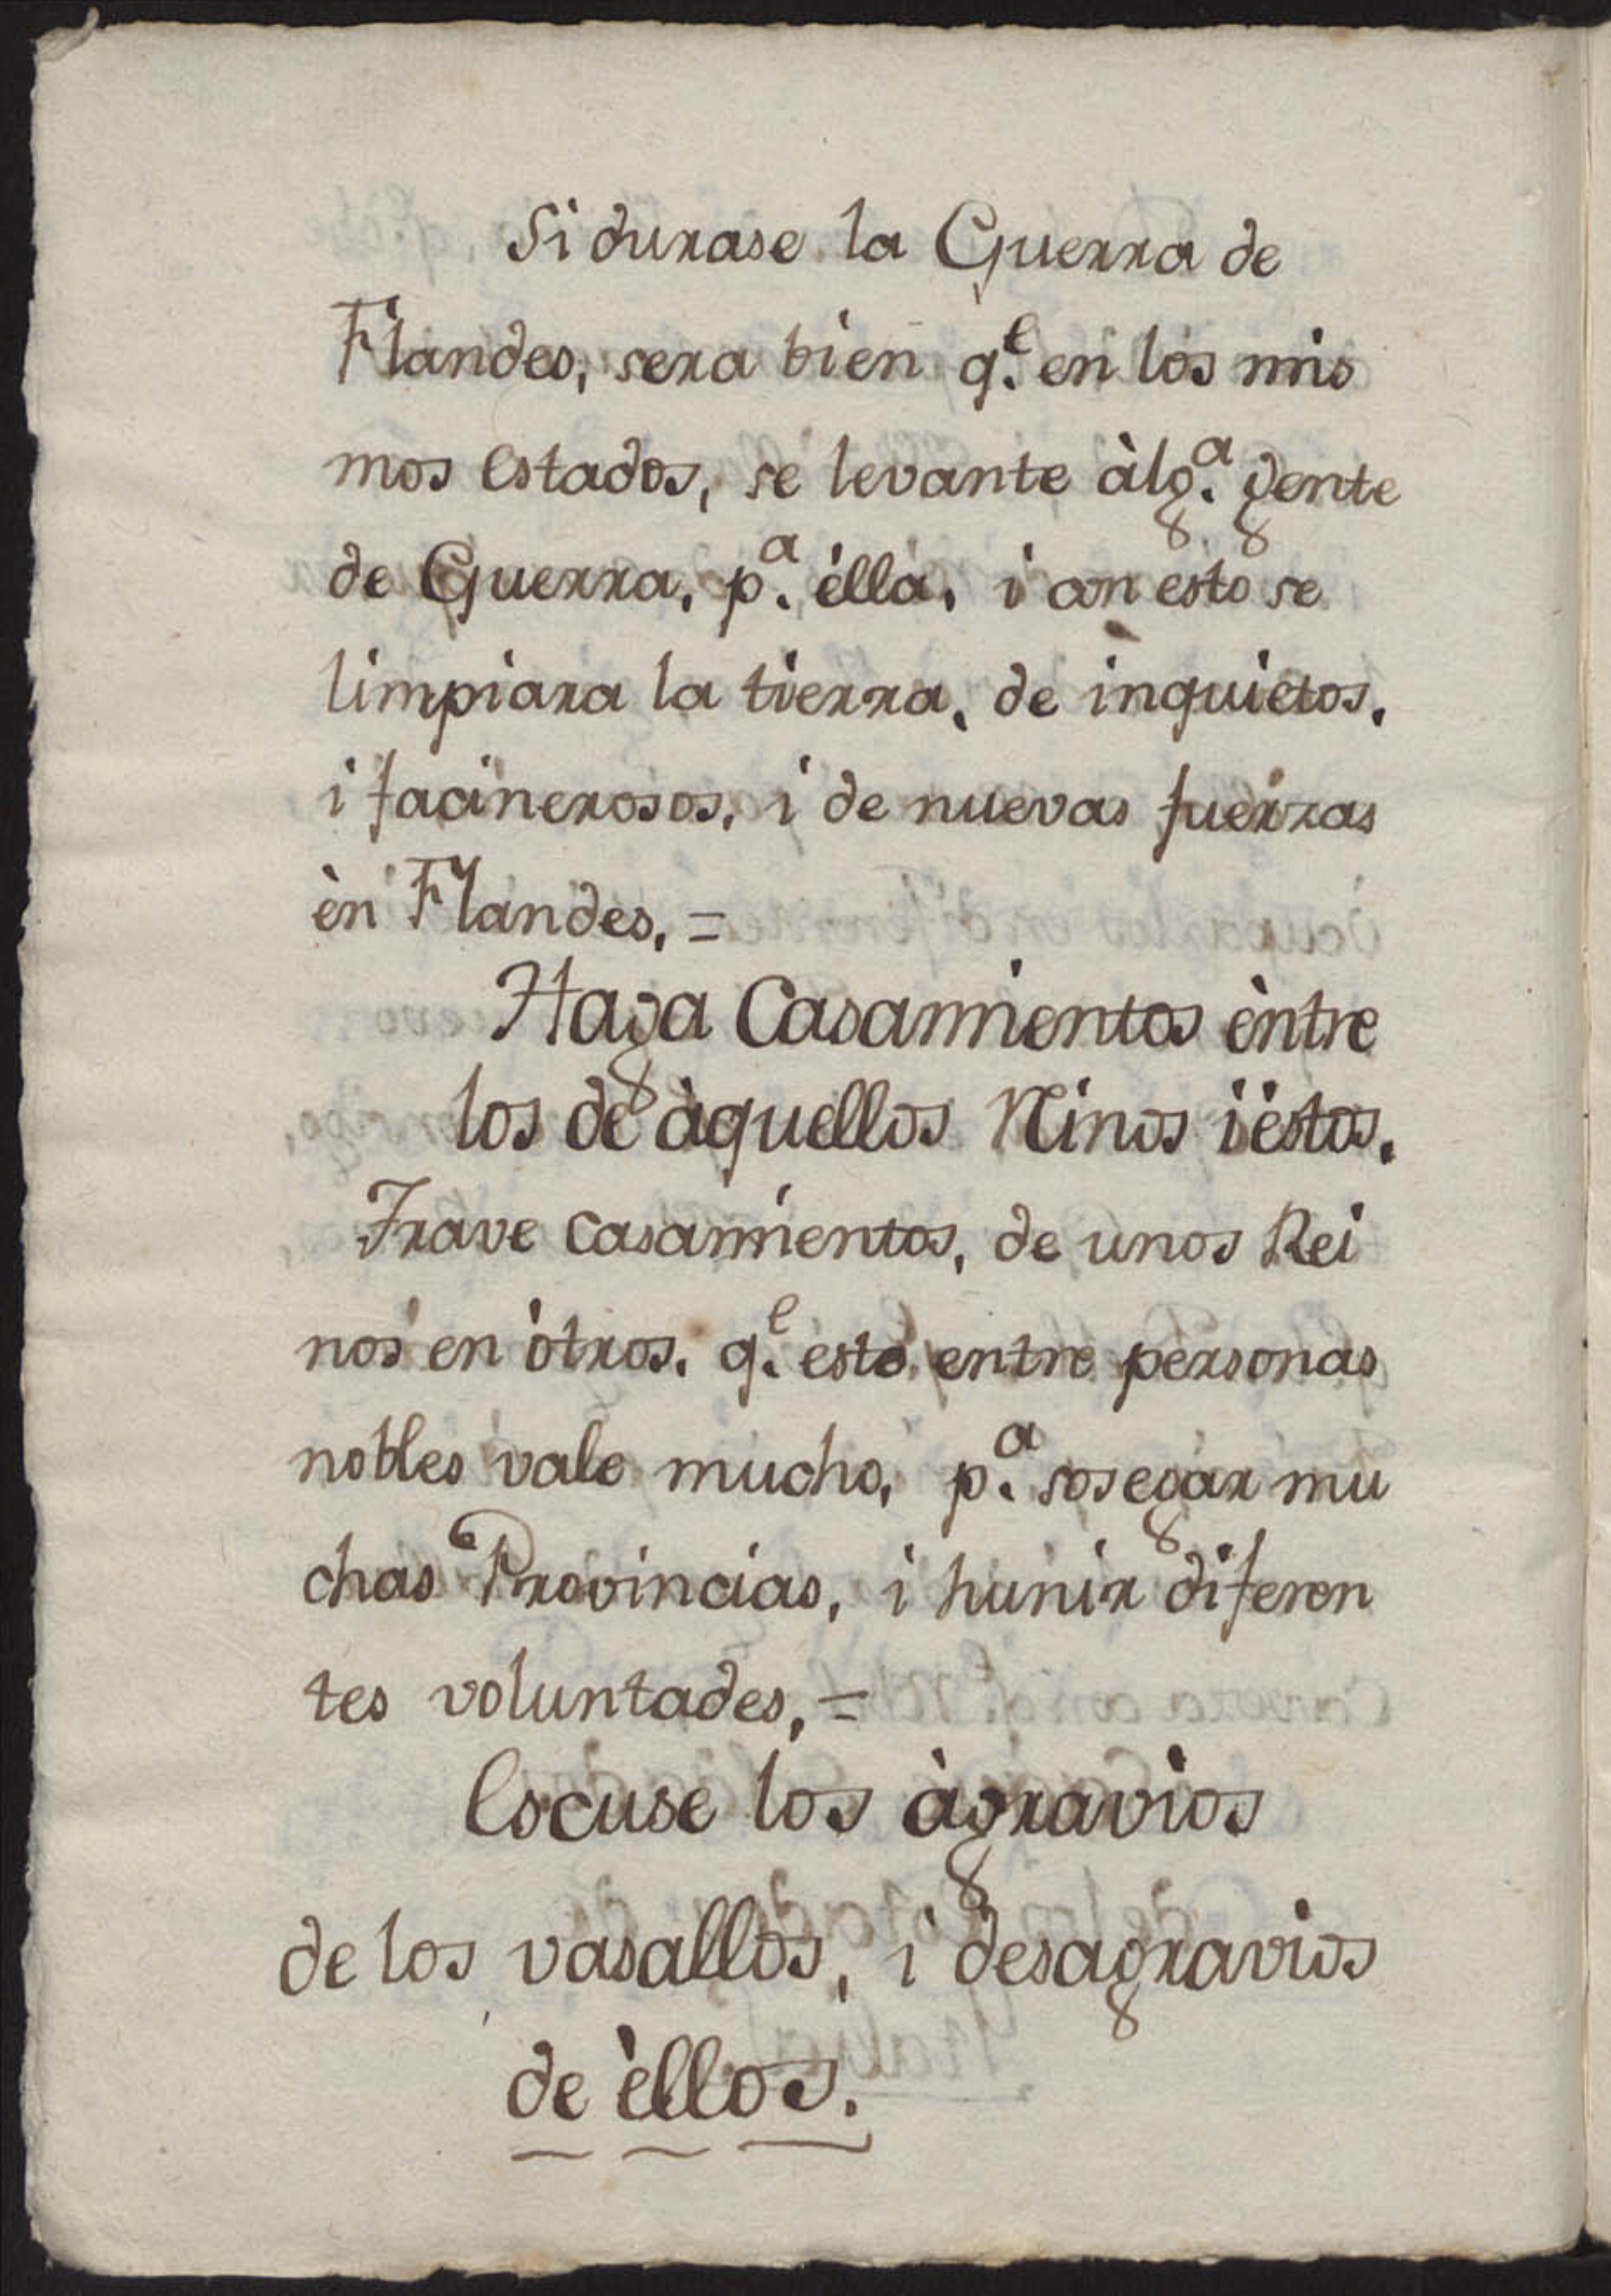 Si durase la Guerra de
Flandes, sera bien q.e en los mis
mos estados, se levante àlg.a gente
de Guerra, p.a èlla, i con esto se
limpiara la tierra, de inquietos,
i facinerosos, i de nuevas fuerzas
èn Flandes, =
Haga Casamientos èntre
los de àquellos Reinos i èstos.
Trave casamientos, de unos Rei
nos en òtros. q.e esto entre personas
nobles vale mucho, p.a sosegar mu
chas Provincias, i hunir diferen
tes voluntades, =
Escuse los àgravios
de los vasallos, i desagravios
de èllos.